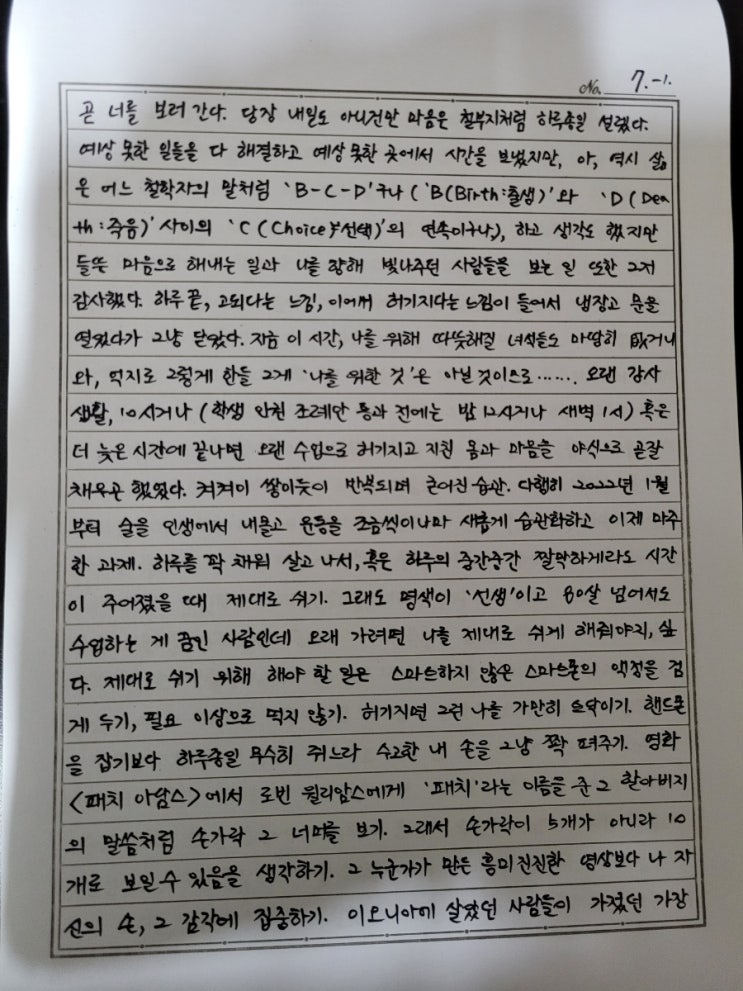 No. 7.-1.
곧 너를 보러 간다. 당장 내일도 아니건만 마음은 철부지처럼 하루종일 설렜다.
예상 못한 일들을 다 해결하고 예상 못한 곳에서 시간을 보냈지만, 아, 역시 삶
은 어느 철학자의 말처럼 'B-C-D'구나 ('B(Birth:출생)'와 'D(Dea
th:죽음)' 사이의 'C(Choice:선택)'의 연속이구나), 하고 생각도 했지만
들뜬 마음으로 해내는 일과 나를 향해 빛나주던 사람들을 보는 일 또한 그저
감사했다. 하루 끝, 고되다는 느낌, 이어써 허기지다는 느낌이 들어서 냉장고 문을
열었다가 그냥 닫았다. 지금 이 시간, 나를 위해 따뜻해질 녀석들도 마땅히 없거니
와, 억지로 그렇게 한들 그게 '나를 위한 것'은 아닐 것이므로....... 오랜 강사
생활, 10시거나 (학생 인천 조례안 통과 전에는 밤 12시거나 새벽 1시) 혹은
더 늦은 시간에 끝나면 오랜 수업으로 허기지고 지친 몸과 마음을 야식으로 곧잘
채우곤 했었다. 켜켜이 쌓이듯이 반복되며 굳어진 습관. 다행히 2022년 1월
부터 술을 인생에서 내몰고 운동을 조금씩이나마 새롭게 습관화하고 이제 마주
한 과제. 하루를 꽉 채워 살고 나서, 혹은 하루의 중간중간 짤막하게라도 시간
이 주어졌을 때 제대로 쉬기. 그래도 명색이 '선생'이고 80살 넘어서도
수업하는 게 꿈인 사람인데 오래 가려면 나를 제대로 쉬게 해줘야지, 싶
다. 제대로 쉬기 위해 해야 할 일은 스마트하지 않은 스마트폰의 액정을 검
게 두기, 필요 이상으로 먹지 않기. 허기지면 그런 나를 가만히 토닥이기. 핸드폰
을 잡기보다 하루종일 무수히 쥐느라 수고한 내 손을 그냥 쫙 펴주기. 영화
<패치 아담스>에서 로빈 윌리암스에게 '패치'라는 이름을 준 그 할아버지
의 말씀처럼 손가락 그 너머를 보기. 그래서 손가락이 5개가 아니라 10
개로 보일 수 있음을 생각하기. 그 누군가가 만든 흥미진진한 영상보다 나 자
신의 손, 그 감각에 집중하기. 이오니아에 살았던 사람들이 가졌던 가장